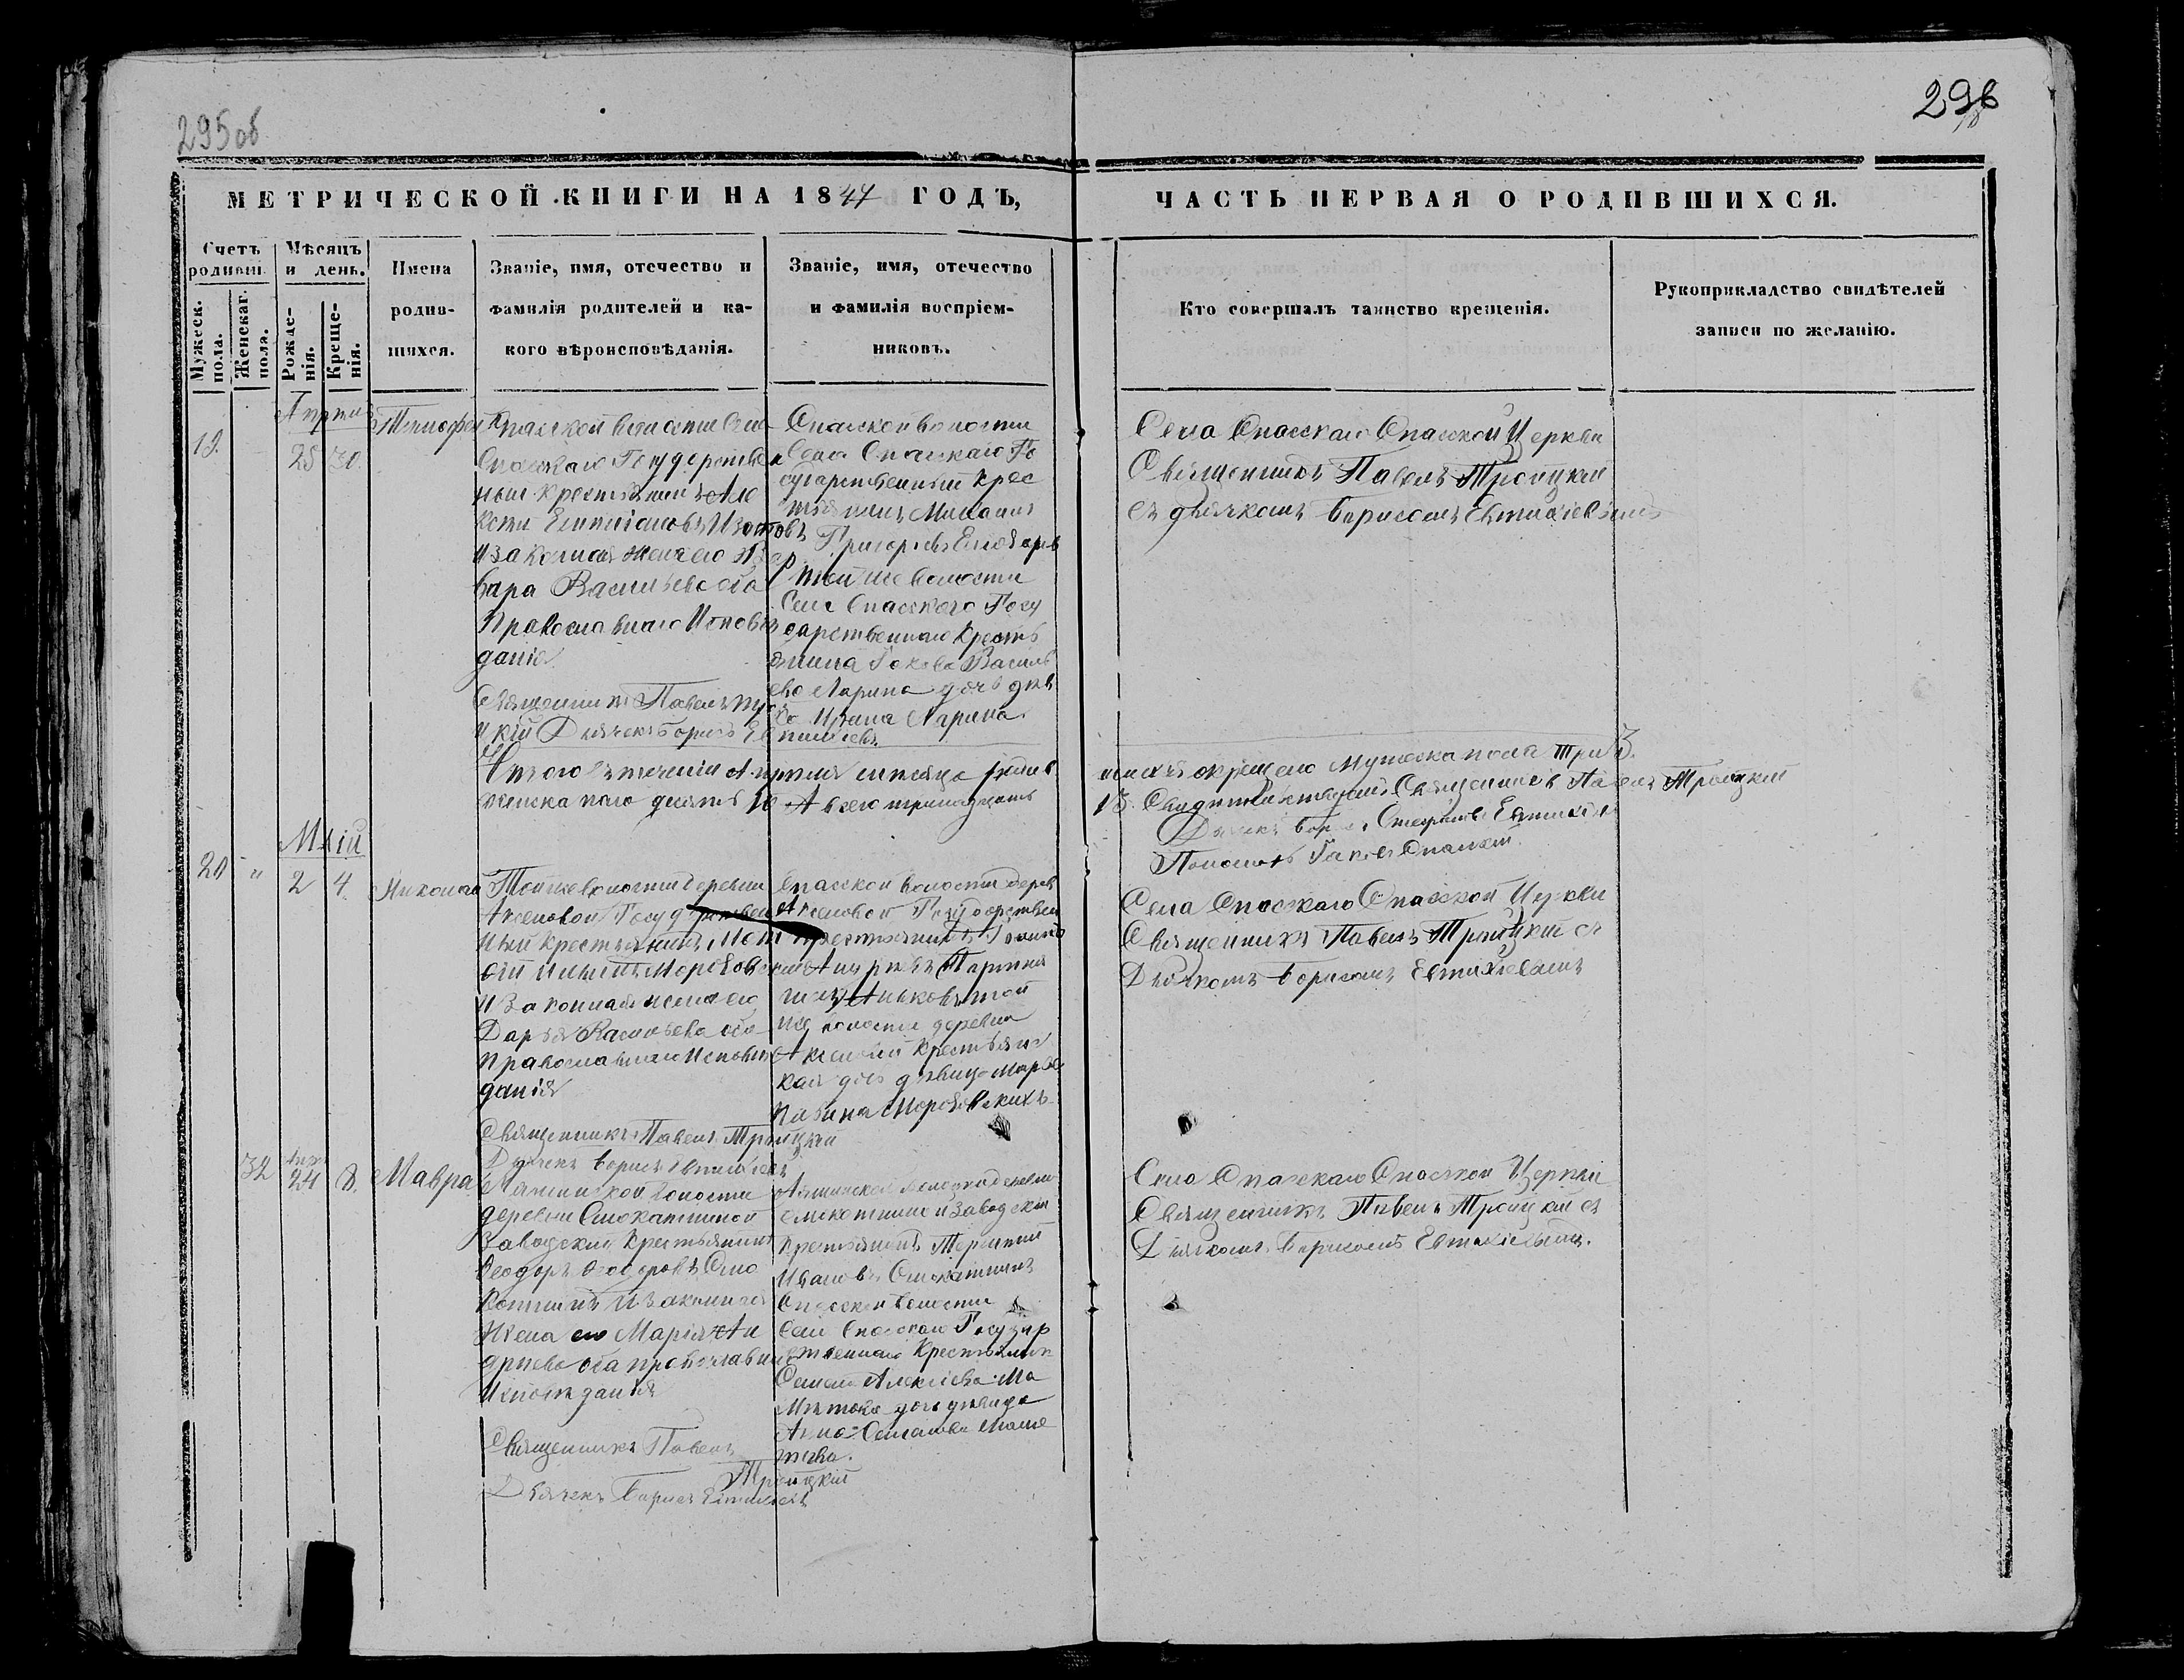 295об
296
МЕТРИЧЕСКОЙ КНИГИ НА 1844 ГОДЪ,
ЧАСТЬ ПЕРВАЯ О РОДИВШИХСЯ.
Счетъ родивш.
Мужеск. пола.
Женскаг. пола.
Мѣсяцъ и день.
Рожде-
нія.
Креще-
нія.
Имена
родив-
шихся.
Званіе, имя, отечество и
фамилія родителей и ка-
кого вѣроисповѣданія.
Званіе, имя, отечество
и фамилія воспріем-
никовъ.
Кто совершалъ таинство крещенія.
Рукоприкладство свидѣтелей
записи по желанію.
19.
25 30.
Спасской волости Села
Спасскаго Государствен
ный Крестьянинъ Але
изаконная жена его
вара Васильева оба
Православнаго Исповѣ
данія
Священникъ Павелъ Тро
ицкій Дьячекъ Борисъ Евтихіевъ
Спасской волости
Села Спасскаго Го
сударственный Крес
тьянинъ
Григорьевъ
той же волости
Села Спасского Госу
дарственнаго Кресть
янина Якова Василь
ева Ларина дочь дѣв
Ларина.
Села Спасскаго Спасской Церкви
Священникъ Павелъ Троицкій
съ дьячкомъ Борисомъ Евтихіевымъ
Итого въ теченіи Апрѣля мѣсяца
окрещено Мужеска пола три 3.
женска пола десять 10 А всего тринадцать
13. Священникъ Павелъ Троицкій
Дьячекъ Евтихіевъ
Пономарь Яковъ Спасскій.
Май
20 " 2 4. Николай
Тойже волости деревни
Аксеновой Государствен
ный Крестьянинъ
изаконная жена его
Дарья Васильева оба
Православнаго Исповѣ
данія
Священникъ Павелъ Троицкій
Дьячекъ Борисъ Евтихіевъ
Спасской волости дерев
Аксеновой Государствен
крестьянинъ
той
же волости деревни
Аксеновой Крестьянс
кая дочь дѣвица
Села Спасскаго Спасской Церкви
Священникъ Павелъ Троицкій съ
Дьячкомъ Борисомъ Евтихіевымъ
32 24 8. Мавра
волости
деревни Смокатиной
Заводскій Крестьянинъ
Ѳеодоръ Ѳеодоровъ Смо
катинъ изаконная
жена его Марія Ан
дреева оба православнаго
Исповѣданія
Священникъ Павелъ
Троицкій
Дьячекъ Борисъ Евтихіевъ
волости деревни
Смокатиной Заводскій
Крестьянинъ Терентій
Ивановъ Смокатинъ
Спасской волости
Села Спасскаго Государ
ственнаго Крестьянина
Семена Алексѣева Ма
дочь дѣвица
Анна Семенова
Села Спасскаго Спасской Церкви
Священникъ Павелъ Троицкій съ
Дьячкомъ Борисомъ Евтихіевымъ.